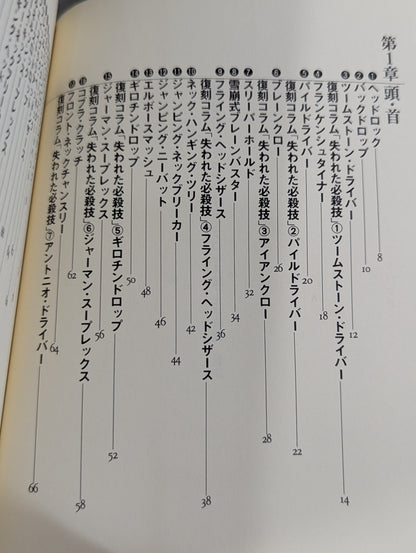 第1章 頭・首
❶ヘッドロック 8
❷バックドロップ 10
❸ツームストーン・ドライバー 12
復刻コラム「失われた必殺技」①ツームストーン・ドライバー 14
❹フランケンシュタイナー 18
❺パイルドライバー 20
復刻コラム「失われた必殺技」②パイルドライバー 22
❻ブレーンクロー 26
復刻コラム「失われた必殺技」③アイアンクロー 28
❼スリーパーホールド 32
❽雪崩式ブレーンバスター 34
❾フライング・ヘッドシザース 36
復刻コラム「失われた必殺技」④フライング・ヘッドシザース 38
❿ネック・ハンギング・ツリー 42
⓫ジャンピング・ネックブリーカー 44
⓬ジャンピング・ニーパット 46
⓭エルボースマッシュ 48
⓮ギロチンドロップ 50
復刻コラム「失われた必殺技」⑤ギロチンドロップ 52
⓯ジャーマン・スープレックス 56
復刻コラム「失われた必殺技」⑥ジャーマン・スープレックス 58
⓰コブラ・クラッチ 62
⓱フロント・ネックチャンスリー 64
復刻コラム「失われた必殺技」⑦アントニオ・ドライバー 66